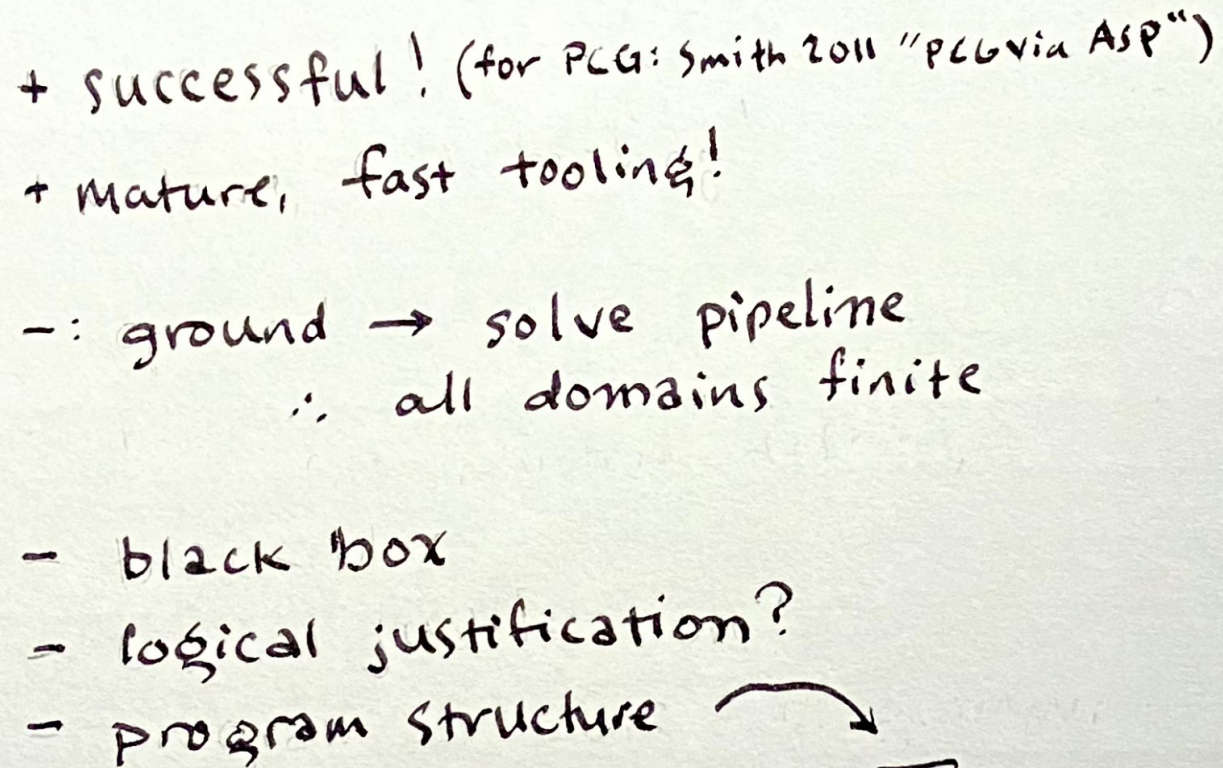 + successful! (for PCG: Smith 2011 "PCG via ASP")
+ mature, fast tooling!
-: ground → solve pipeline
∴ all domains finite
- black box
- logical justification?
- program structure